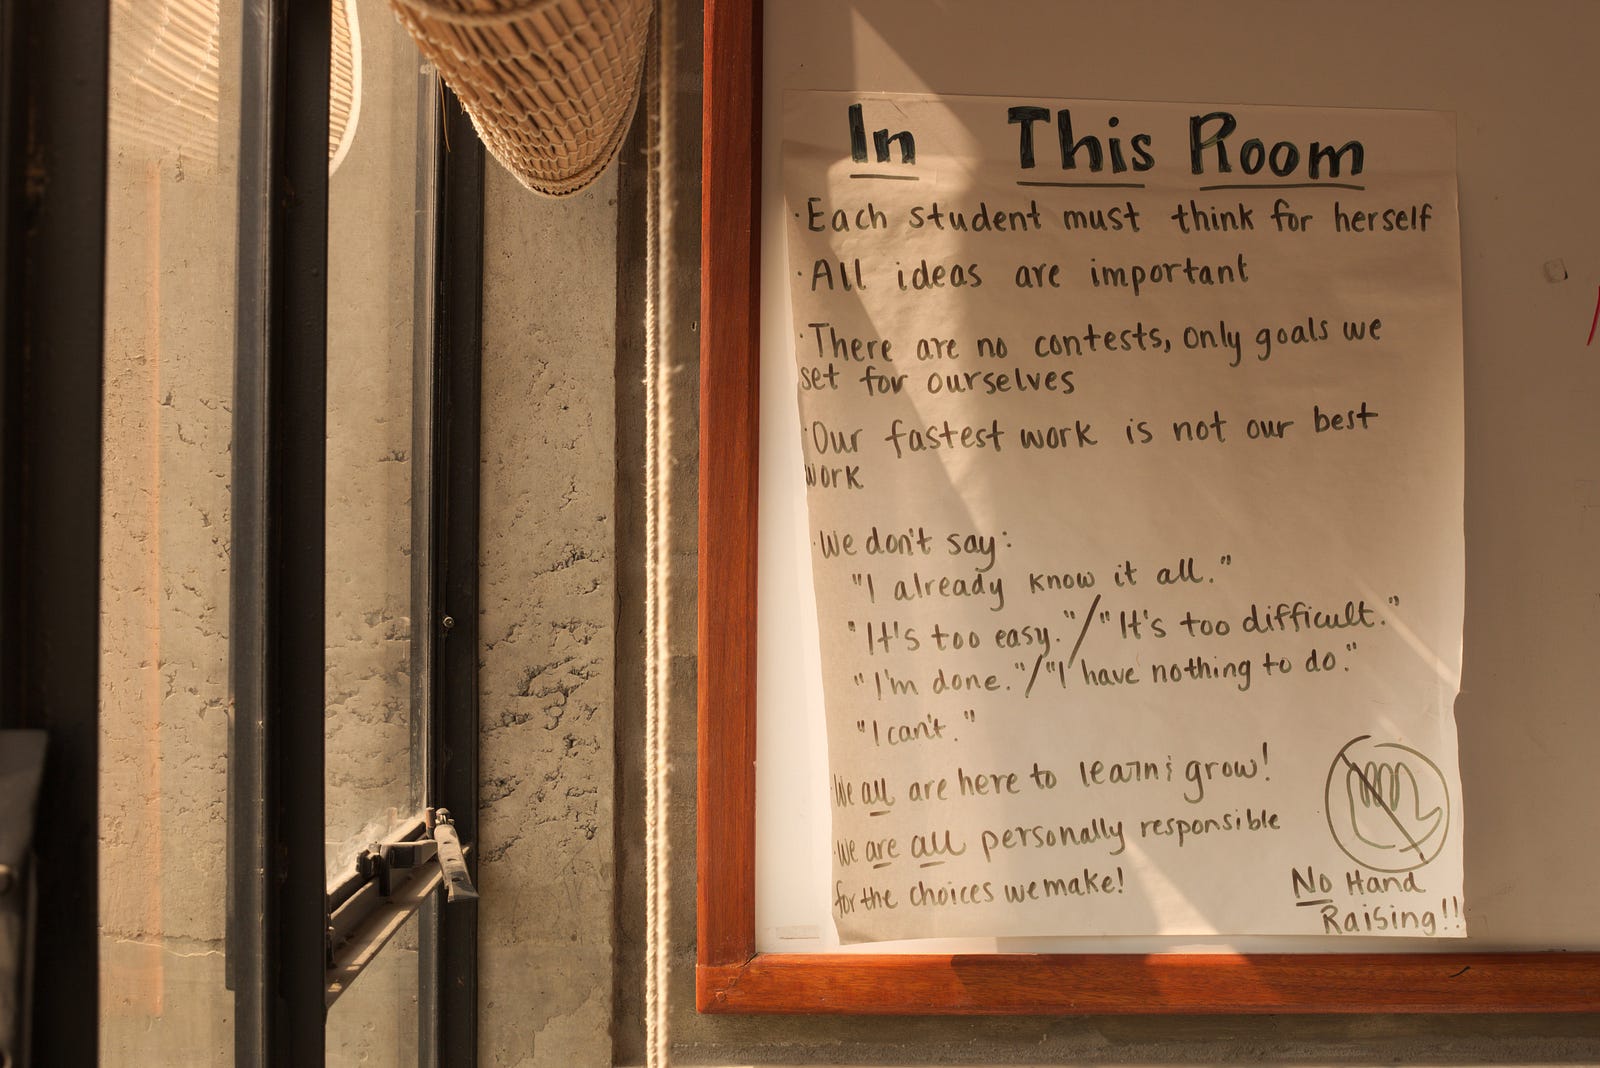 In This Room
· Each student must think for herself
· All ideas are important
· There are no contests, only goals we
set for ourselves
· Our fastest work is not our best
work
· We don't say:
"I already know it all."
"It's too easy."/"It's too difficult."
"I'm done."/"I have nothing to do."
"I can't."
· We all are here to learn & grow!
· We are all personally responsible
for the choices we make!
No Hand
Raising!!